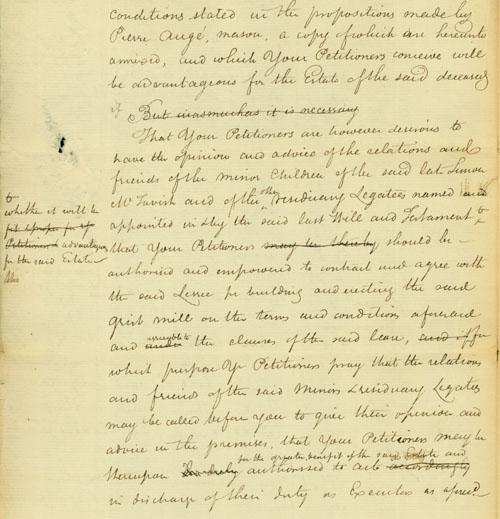 conditions stated in the propositions made by
Pierre Augé, mason, a copy of which are hereunto
annexed, and which Your Petitioners conceive will
be advantageous for the Estate of the said deceased
But inasmuch as it is necessary
That Your Petitioners are however desirous to
have the opinion and advice of the relations and
friends of the minor Children of the said late Simon
McTavish and of the other residuary Legatees named and
appointed in & by the said last Will and Testament
that Your Petitioners may be thereby should be
authorised and empowered to contract and agree with
the said Lessee for building and erecting the said
grist mill on the terms and conditions aforesaid
and under agreeable to the clauses of the said lease, and if for
which purpose Yr Petitioners pray that the relations
and friends of the said Minors & residuary Legatees
may be called before you to give their opinion and
advice in the premises, that Your Petitioners may be
for the greater benefit of the said Estate and
thereupon authorised to act accordingly
in discharge of their duty as Executors as afores.d
to
whether it will be
Petitioners advantageous
for the said Estate